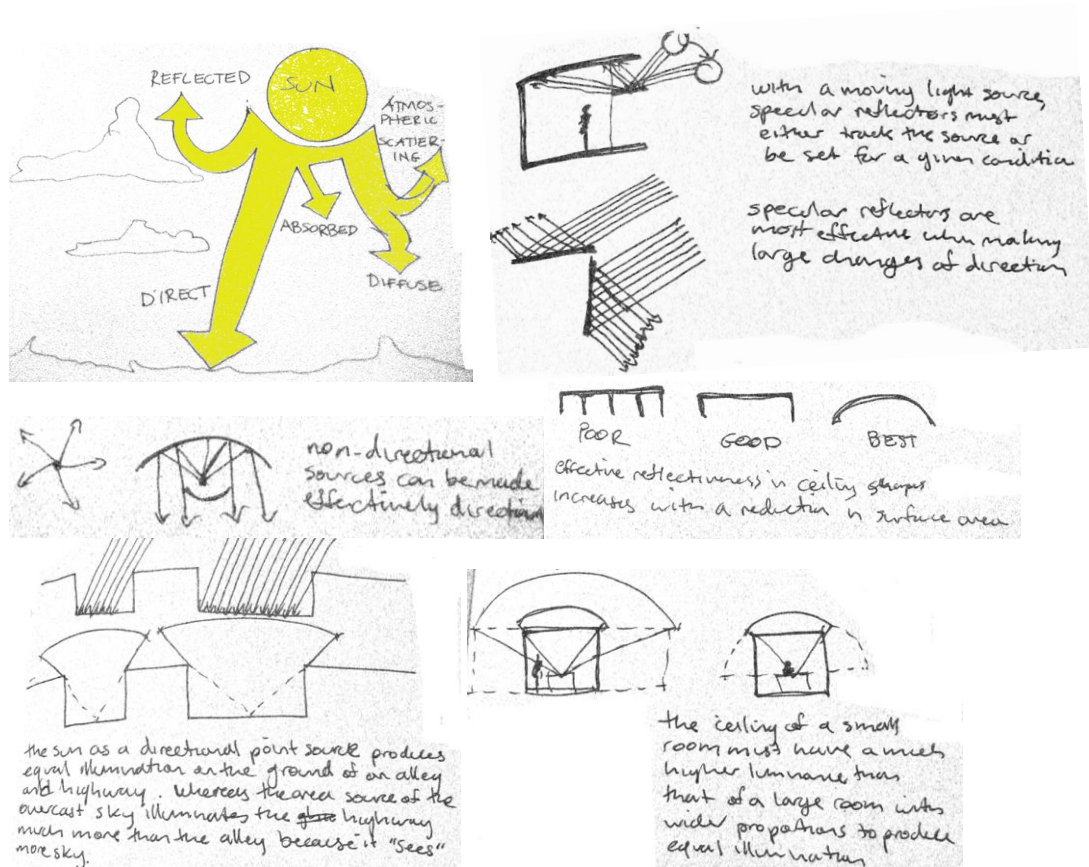 REFLECTED
SUN
ATMOS-
PHERIC
SCATTER-
ING
ABSORBED
DIRECT
DIFFUSE
with a moving light source,
specular reflectors must
either track the source or
be set for a given condition
specular reflectors are
most effective when making
large changes of direction
non-directional
sources can be made
effectively direction
POOR
GOOD
BEST
effective reflectiveness in ceiling shapes
increases with a reduction in surface area
the sun as a directional point source produces
equal illumination on the ground of an alley
and highway. Whereas the area source of the
overcast sky illuminates the highway
much more than the alley because it "sees"
more sky.
the ceiling of a small
room must have a much
higher luminance than
that of a large room with
wider proportions to produce
equal illumination